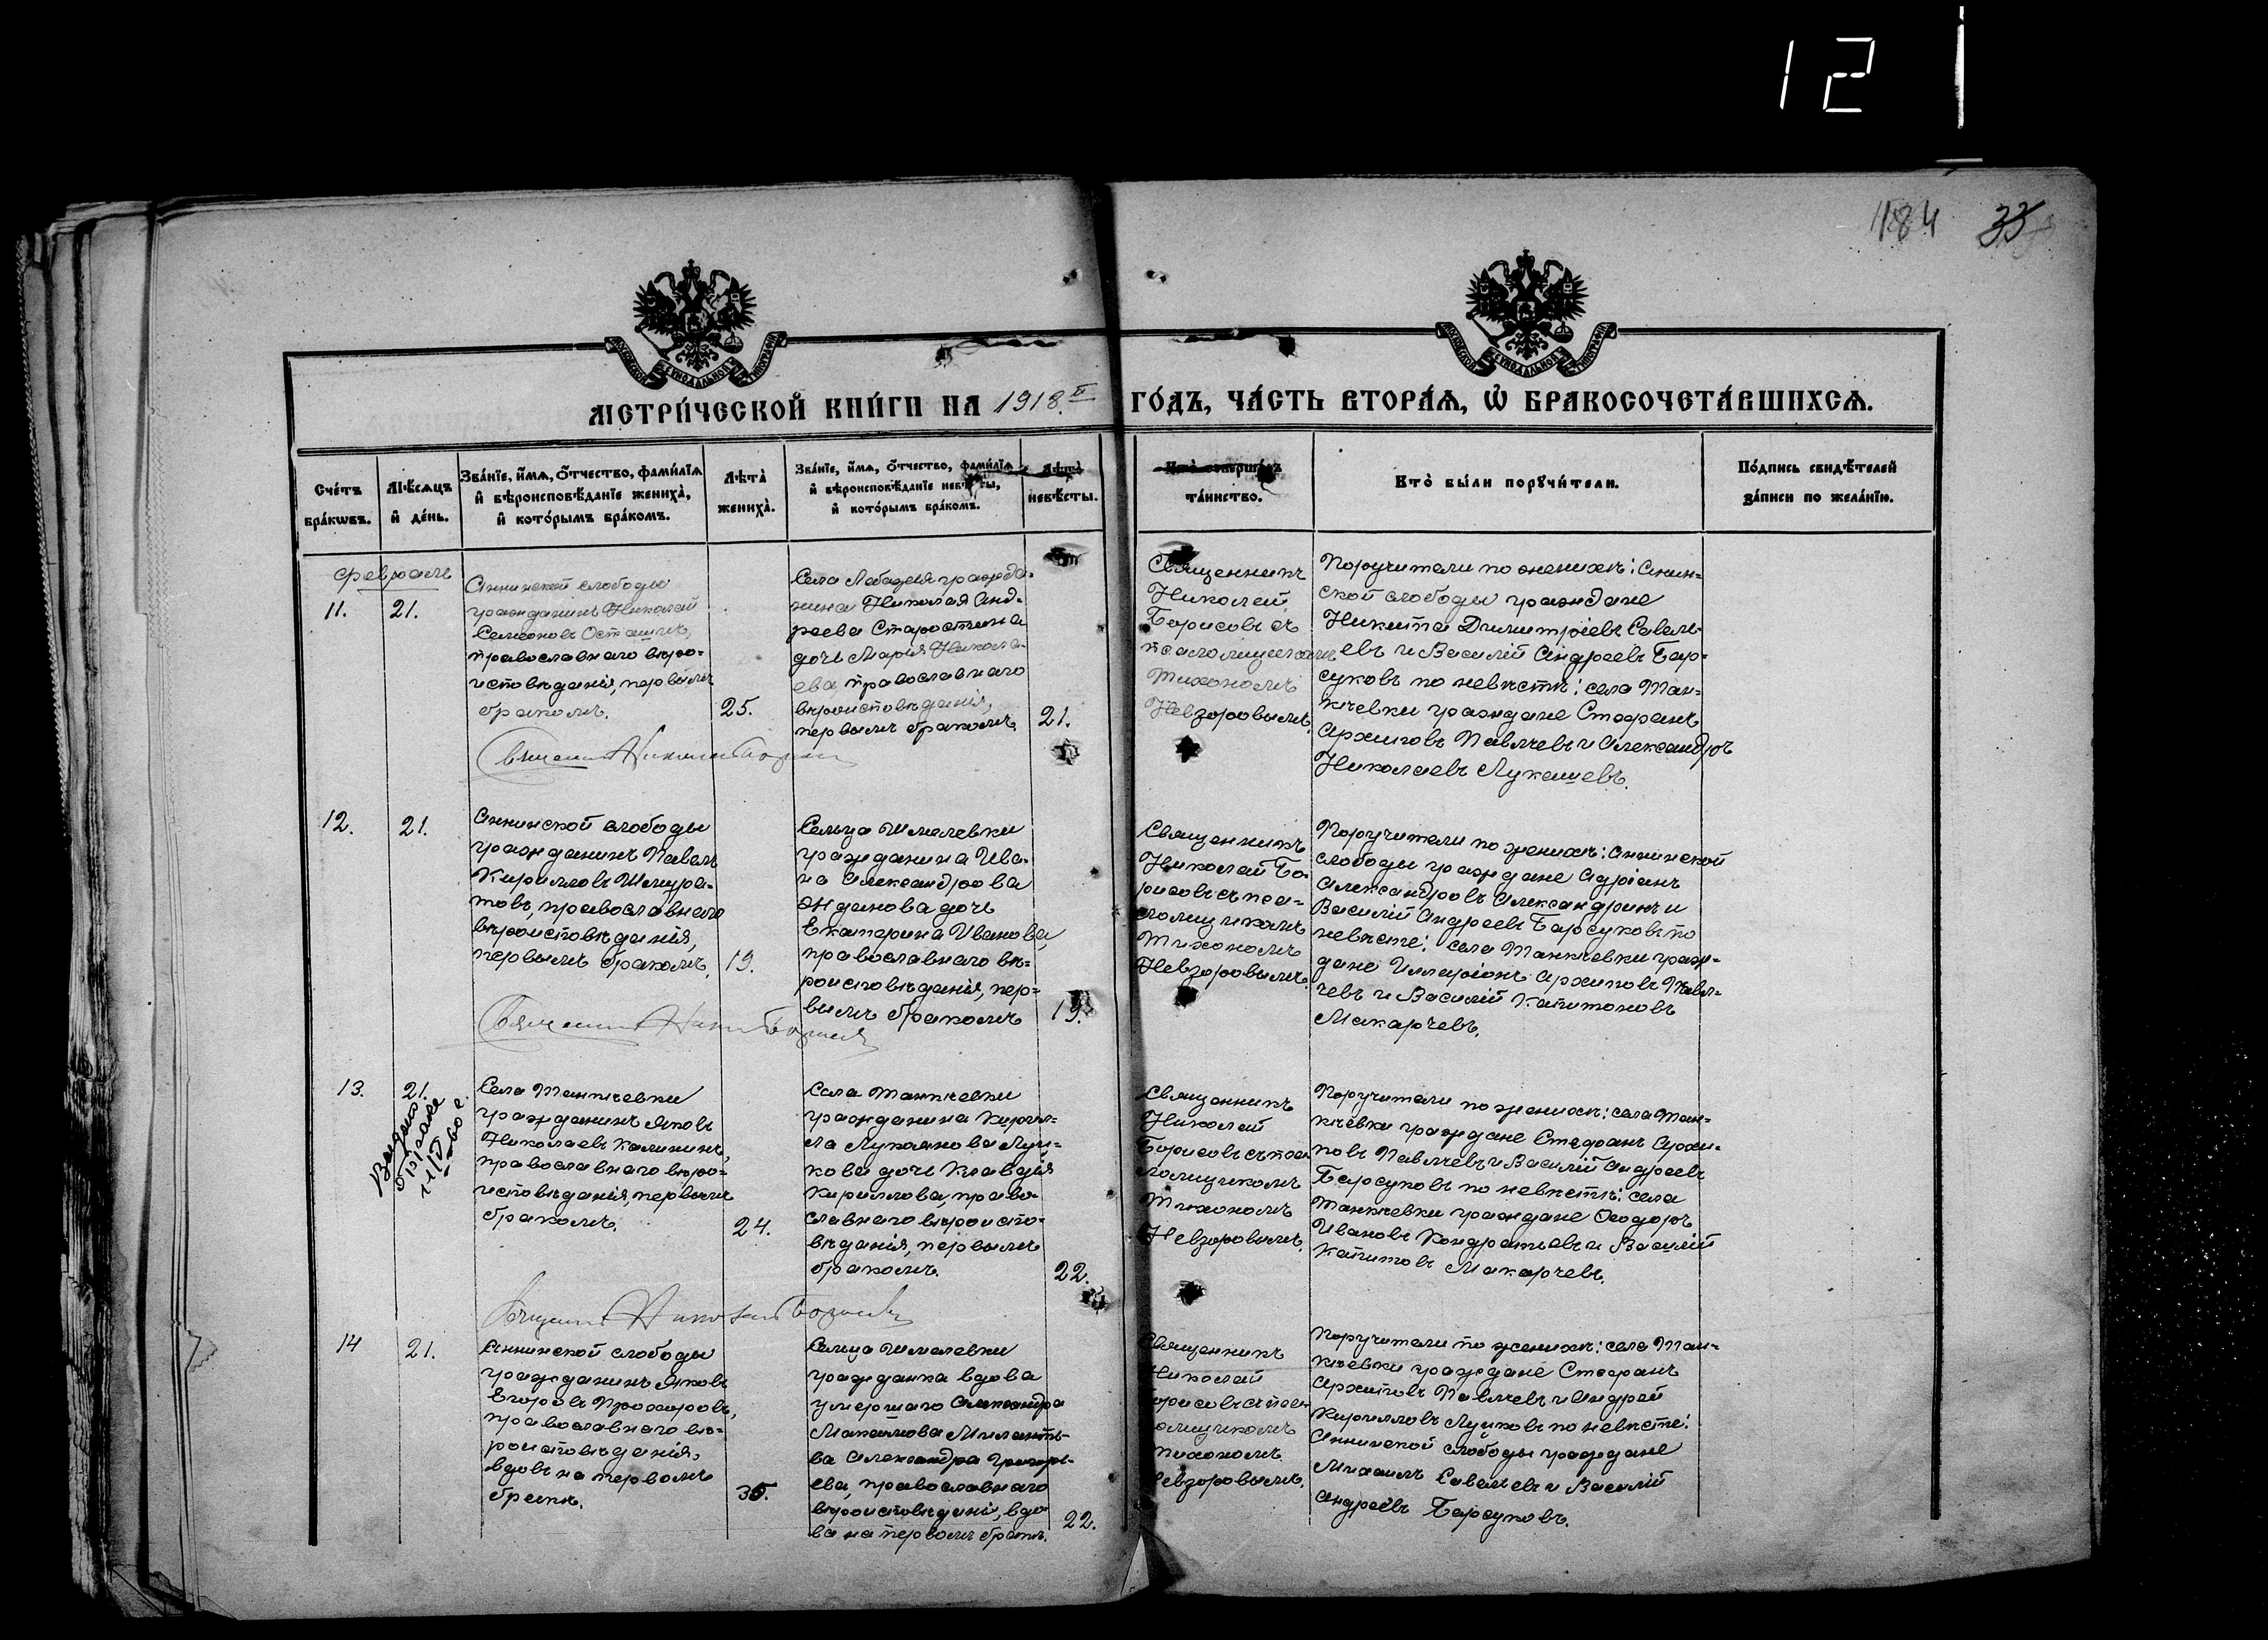 12
184 33
МОСКОВСКОЙ СѴНОДАЛЬНОЙ ТИПОГРАФІИ
МОСКОВСКОЙ СѴНОДАЛЬНОЙ ТИПОГРАФІИ
МЕТРИ́ЧЕСКОЙ КНИ́ГИ НА 1918.й ГО́ДЪ, ЧА́СТЬ ВТОРА́Ѧ, Ѽ БРАКОСОЧЕТА́ВШИХСѦ.
Сче́тъ
бра́кѡвъ.
Мѣ́сѧцъ
и҆ де́нь.
Зва́нїе, и҆́мѧ, ѻ҆́тчество, фами́лїѧ
и҆ вѣроисповѣ́данїе жениха̀,
и҆ кото́рымъ бра́комъ.
Лѣ́та
жениха̀.
Зва́нїе, и҆́мѧ, ѻ҆́тчество, фами́лїѧ
и҆ вѣроисповѣ́данїе невѣ́сты,
и҆ кото́рымъ бра́комъ.
Лѣ́та
невѣ́сты.
Кто̀ соверша́лъ
та́инство.
Кто̀ бы́ли порꙋчи́тели.
По́дпись свидѣ́телей
за́писи по жела́нїю.
февраль
11.
21.
Аннинской слободы
гражданинъ Николай
Семеновъ Осташинъ,
православнаго вѣро-
исповѣданія, первымъ
бракомъ.
25.
Села Лебедя гражда-
нина Николая Анд-
реева Старостина
дочь Марія Никола-
ева, православнаго
вѣроисповѣданія,
первымъ бракомъ.
21.
Священникъ
Николай
Борисовъ съ
псаломщикомъ
Тихономъ
Невзоровымъ.
Поручители по женихѣ: Аннин-
ской слободы граждане
Никита Димитріевъ Савель-
евъ и Василій Андреевъ Бар-
суковъ по невѣстѣ: села Тан-
кѣевки граждане Стефанъ
Архиповъ Павлчевъ и Александръ
Николаевъ Лукашевъ.
Священникъ Николай Борисовъ
12.
21.
Аннинской слободы
гражданинъ Павелъ
Кирилловъ Шмура-
товъ, православнаго
вѣроисповѣданія,
первымъ бракомъ.
19.
Сельца Шмелевки
гражданина Ива-
на Александрова
Жданова дочь
Екатерина Иванова,
православнаго вѣ-
роисповѣданія, пер-
вымъ бракомъ
19.
Священникъ
Николай Бо-
рисовъ съ пса-
ломщикомъ
Тихономъ
Невзоровымъ.
Поручители по женихѣ: Аннинской
слободы граждане Адріанъ
Александровъ Александринъ и
Василій Андреевъ Барсуковъ по
невѣсте: села Танкѣевки граж-
дане Илларіонъ Архиповъ Павл-
чевъ и Василій Капитоновъ
Макарчевъ.
Священникъ Николай Борисовъ
13.
21.
Выдано
2-го
Села Танкѣевки
гражданинъ Яковъ
Николаевъ Калининъ,
православнаго вѣро-
исповѣданія, первымъ
бракомъ.
24.
Села Танкѣевки
гражданина Кирил-
ла Лукьянова Луч-
кова дочь Клавдія
Кириллова, право-
славнаго вѣроиспо-
вѣданія, первымъ
бракомъ.
22.
Священникъ
Николай
Борисовъ съ пса-
ломщикомъ
Тихономъ
Невзоровымъ.
Поручители по женихѣ: села Тан-
кѣевки граждане Стефанъ Архи-
повъ Павлчевъ и Василій Андреевъ
Барсуковъ по невѣстѣ: села
Танкѣевки граждане Ѳеодоръ
Ивановъ Кондратьевъ и Василій
Капитовъ Макарчевъ.
Священникъ Николай Борисовъ
14
21.
Аннинской слободы
гражданинъ Яковъ
Егоровъ Прохоровъ,
православнаго вѣ-
роисповѣданія,
вдовъ на первомъ
бракѣ.
35.
Сельца Шмелевки
гражданка вдова
умершаго Александра
Максимова
Александра Григорь-
ева, православнаго
вѣроисповѣданія, вдо-
ва на первомъ бракѣ.
22.
Священникъ
Николай
Борисовъ съ пса-
ломщикомъ
Тихономъ
Невзоровымъ.
Поручители по женихѣ: села Тан-
кѣевки граждане Стефанъ
Архиповъ Павлчевъ и Андрей
Кирилловъ Лучковъ по невѣсте:
Аннинской слободы граждане
Михаилъ Савельевъ и Василій
Андреевъ Барсуковъ.